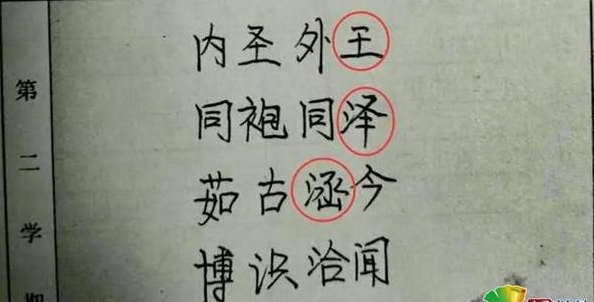 内圣外王
同袍同泽
茹古涵今
博识洽闻
第二学期